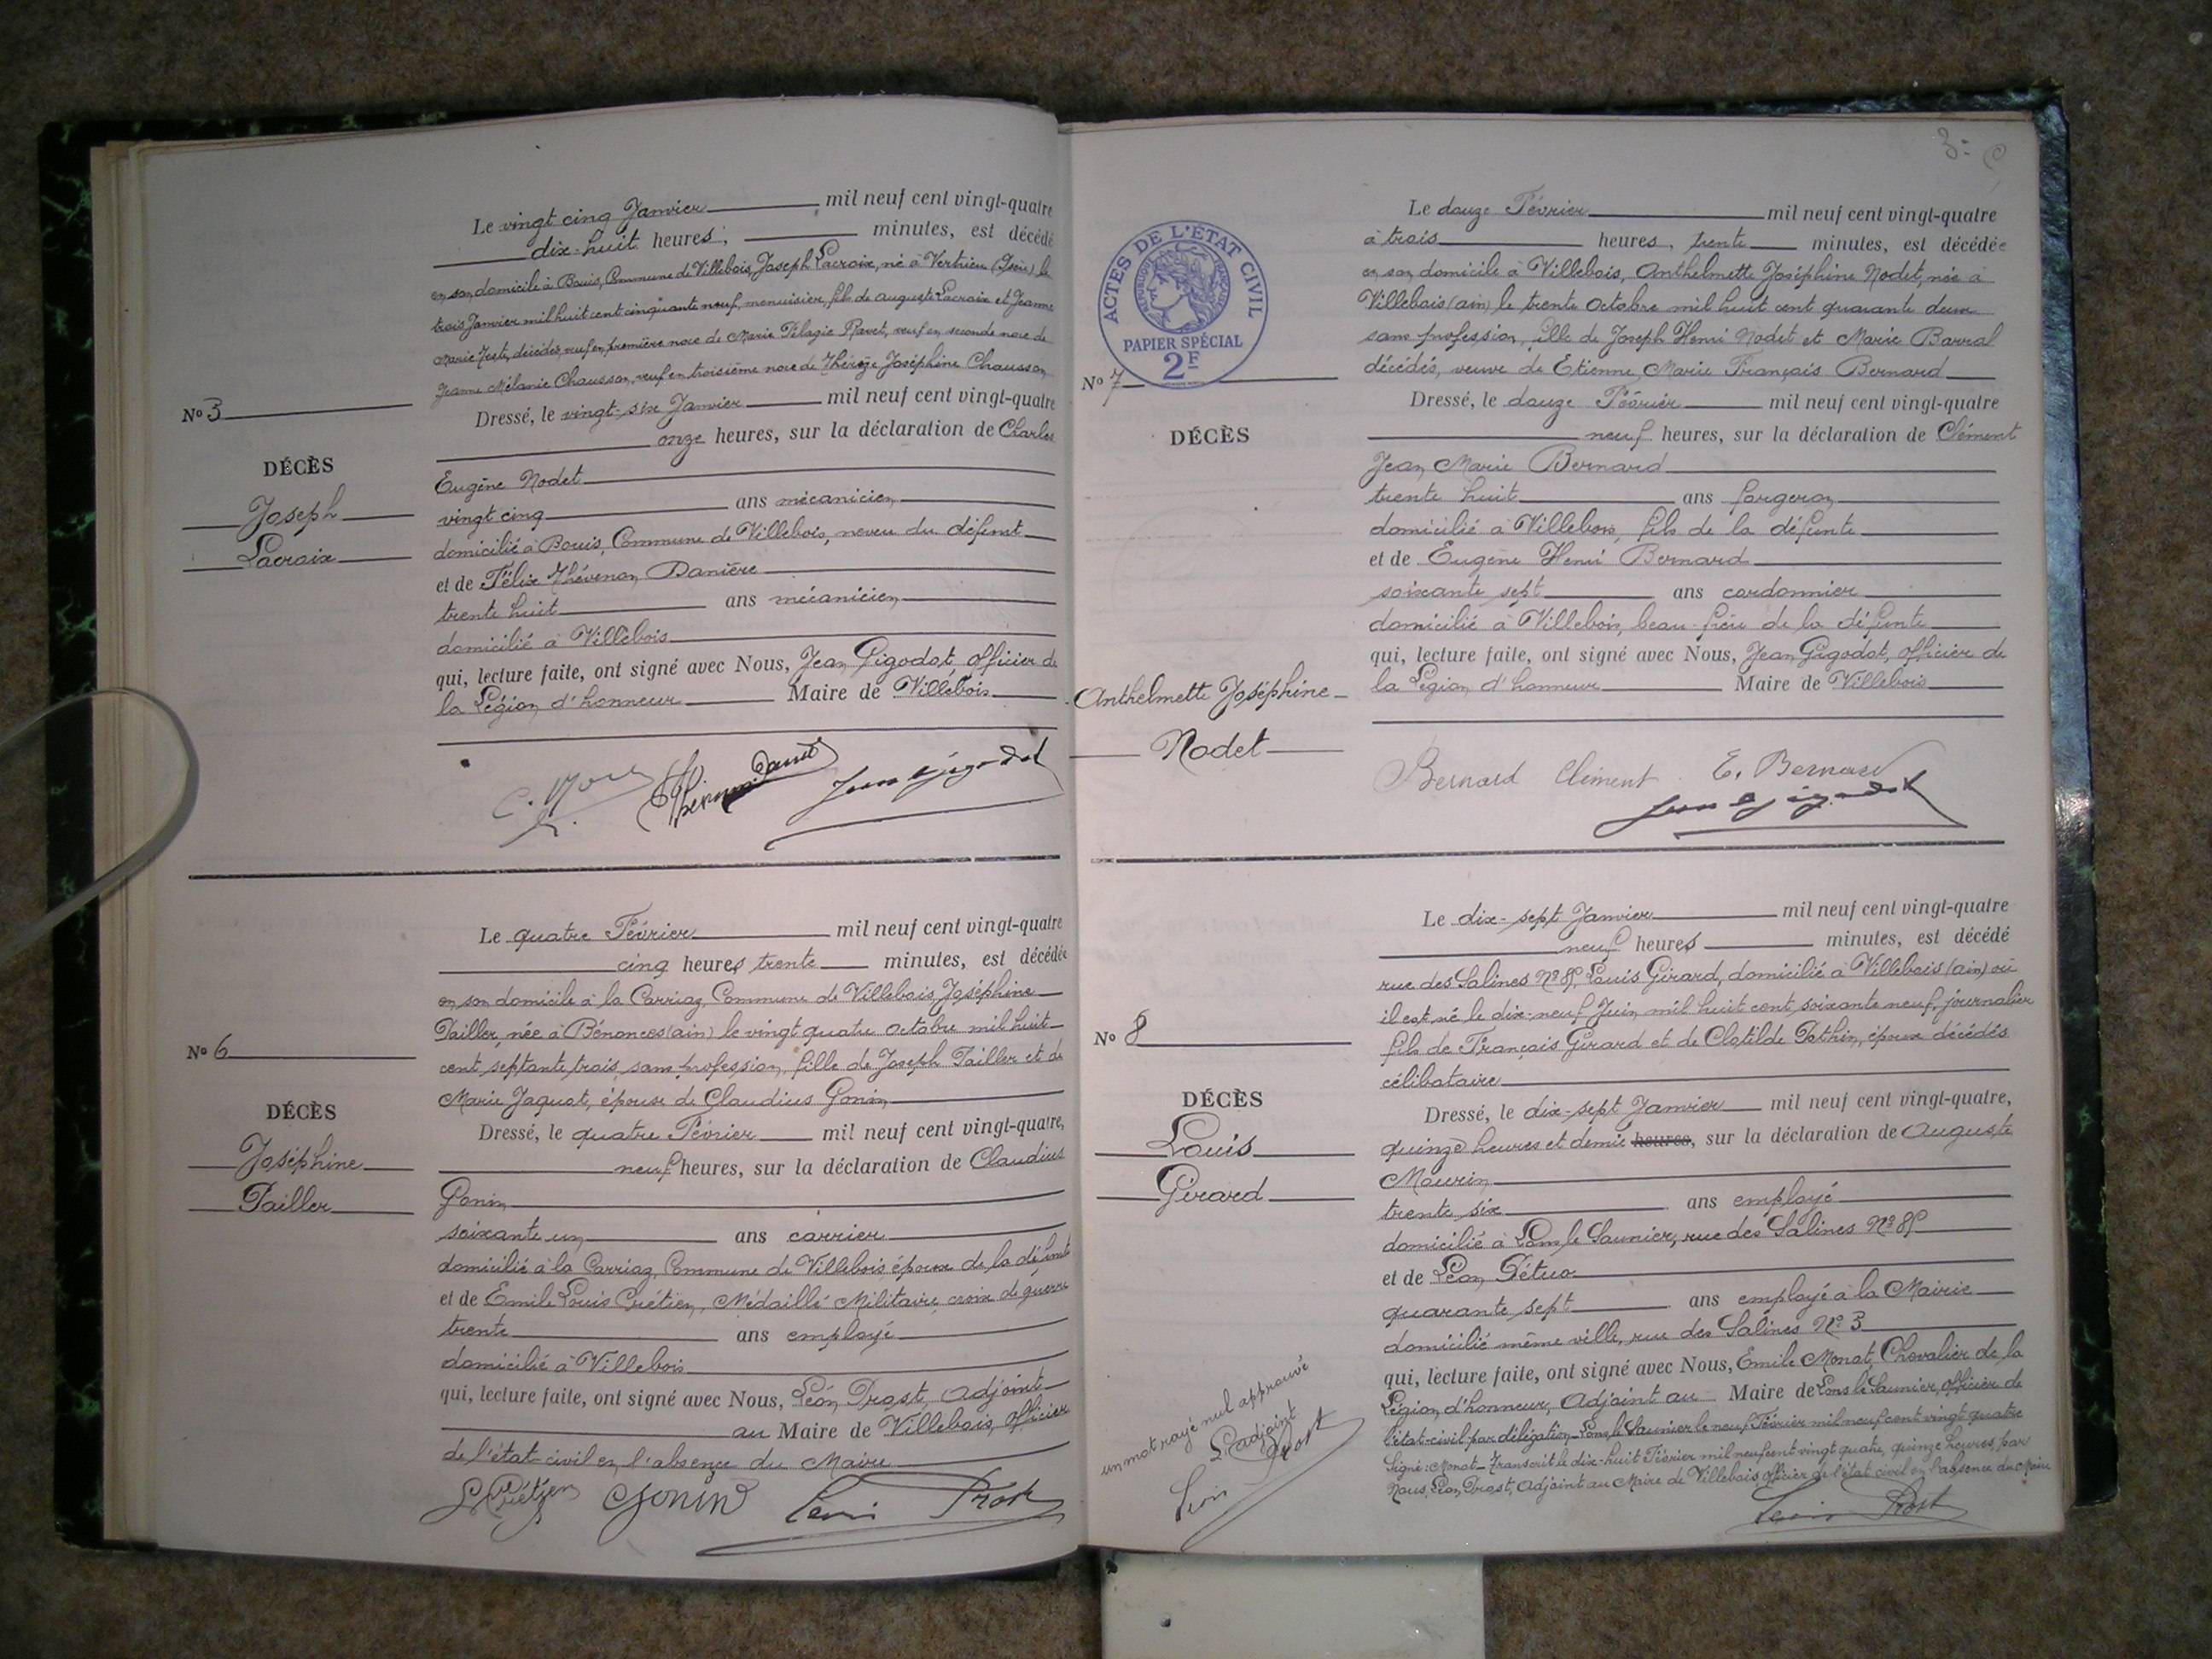 Le vingt cinq Janvier mil neuf cent vingt-quatre
dix-huit heures, minutes, est décédé
en son domicile à Bouis, Commune de Villebois, Joseph Lacroix, né à Vertrieu (Isère) le
trois Janvier mil huit cent cinquante neuf, menuisier, fils de auguste Lacroix et Jeanne
Marie décédés, veuf en première noce de Marie Pélagie Ravet, veuf en seconde noce de
Jeanne Mélanie Chausson, veuf en troisième noce de Thérèze Joséphine Chausson
No 3
Dressé, le vingt-six Janvier mil neuf cent vingt-quatre
onze heures, sur la déclaration de Charles
DÉCÈS
Joseph
Lacroix
Eugène Nodet
vingt cinq ans mécanicien
domicilié à Bouis, Commune de Villebois, neveu du défunt
et de Félix Thévenon Danière
trente huit ans mécanicien
domicilié à Villebois
qui, lecture faite, ont signé avec Nous, Jean Gigodot, officier de
la Légion d'honneur Maire de Villebois
Jean Gigodot
Le quatre Février mil neuf cent vingt-quatre
cinq heures trente minutes, est décédée
en son domicile à la Carriaz, Commune de Villebois, Joséphine
Pailler, née à Bénonces (ain) le vingt quatre octobre mil huit
cent septante trois, sans profession, fille de Joseph Pailler et de
Marie Jaquot, épouse de Claudius Gonin
No 6
DÉCÈS
Joséphine
Pailler
Dressé, le quatre Février mil neuf cent vingt-quatre,
neuf heures, sur la déclaration de Claudius
Gonin
soixante un ans carrier
domicilié à la Carriaz, Commune de Villebois époux de la défunte
et de Emile Louis Cuétien, Médaillé Militaire, croix de guerre
trente ans employé
domicilié à Villebois
qui, lecture faite, ont signé avec Nous, Léon Prost, Adjoint
au Maire de Villebois, officier
de l'état-civil en l'absence du Maire
CGonin Léon Prost
3
ACTES DE L'ÉTAT CIVIL
RÉPUBLIQUE FRANÇAISE
PAPIER SPÉCIAL
2F
Le douze Février mil neuf cent vingt-quatre
à trois heures, trente minutes, est décédée
en son domicile à Villebois, Anthelmette Joséphine Nodet, née à
Villebois (ain) le trente octobre mil huit cent quarante deux
sans profession, fille de Joseph Henri Nodet et Marie Barral
décédés, veuve de Etienne Marie François Bernard
No 7
DÉCÈS
Anthelmette Joséphine
Nodet
Dressé, le douze Février mil neuf cent vingt-quatre
neuf heures, sur la déclaration de Clément
Jean Marie Bernard
trente huit ans forgeron
domicilié à Villebois, fils de la défunte
et de Eugène Henri Bernard
soixante sept ans cordonnier
domicilié à Villebois, beau-frère de la défunte
qui, lecture faite, ont signé avec Nous, Jean Gigodot, officier de
la Légion d'honneur Maire de Villebois
Bernard Clément E. Bernard
Jean Gigodot
Le dix-sept Janvier mil neuf cent vingt-quatre
neuf heures minutes, est décédé
rue des Salines No 8, Louis Girard, domicilié à Villebois (ain) où
il est né le dix-neuf Juin mil huit cent soixante neuf, journalier
fils de François Girard et de Clotilde Pothin, époux décédés
célibataire
No 8
DÉCÈS
Louis
Girard
Dressé, le dix-sept Janvier mil neuf cent vingt-quatre,
quinze heures et demie heures, sur la déclaration de Auguste
Maurin
trente six ans employé
domicilié à Lons le Saunier, rue des Salines No 8
et de Léon Pétuo
quarante sept ans employé à la Mairie
domicilié même ville, rue des Salines No 3
qui, lecture faite, ont signé avec Nous, Emile Monat, Chevalier de la
Légion d'honneur, Adjoint au Maire de Lons le Saunier, officier de
l'état-civil par délégation Lons le Saunier le neuf Février mil neuf cent vingt quatre
Signé: Monat Transcrit le dix-huit Février mil neuf cent vingt quatre, quinze heures, par
Nous, Léon Prost, Adjoint au Maire de Villebois officier de l'état civil en l'absence du Maire
Léon Prost
un mot rayé nul approuvé
L'adjoint
Léon Prost